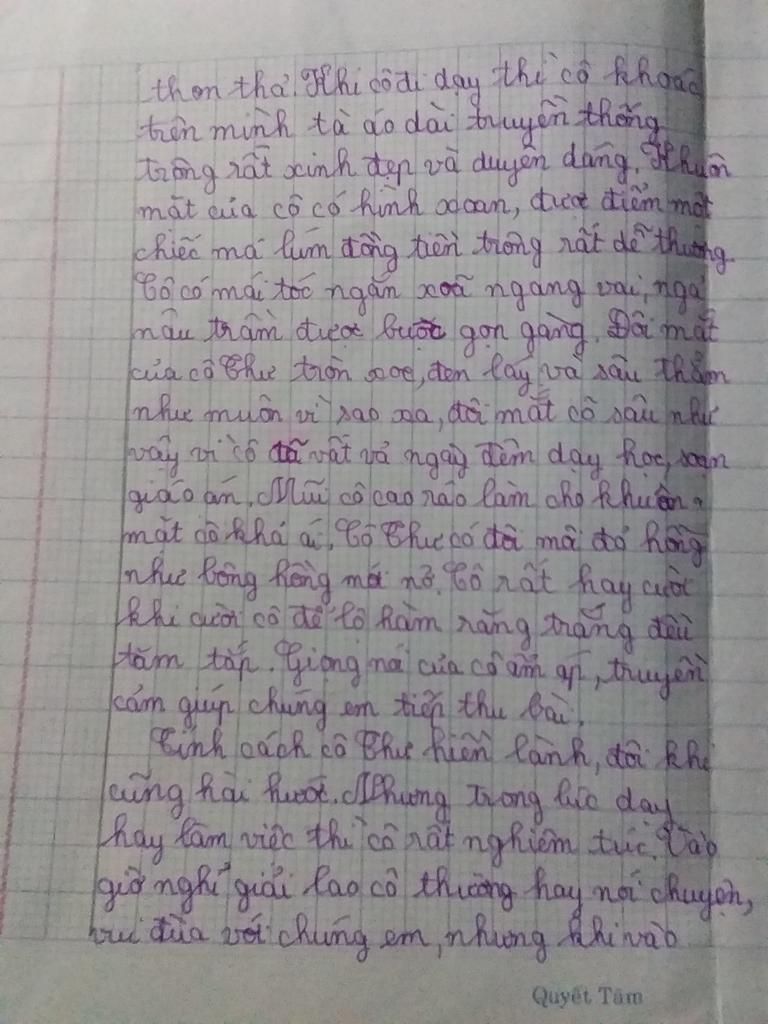 thon thả. Khi cô đi dạy thì cô khoác
trên mình tà áo dài truyền thống
trông rất xinh đẹp và duyên dáng. Khuôn
mặt của cô có hình xoan, được điểm một
chiếc má lúm đồng tiền trông rất dễ thương.
Cô có mái tóc ngắn xoã ngang vai, ngả
nâu trầm được buộc gọn gàng. Đôi mắt
của cô Thư tròn xoe, đen láy và sâu thẳm
như muôn vì sao xa, đôi mắt cô sâu như
vậy vì cô đã vất vả ngày đêm dạy học, soạn
giáo án. Mũi cô cao ráo làm cho khuôn
mặt cô khả ái. Cô Thư có đôi môi đỏ hồng
như bông hồng mới nở. Cô rất hay cười
khi cười cô để lộ hàm răng trắng đều
tăm tắp. Giọng nói của cô ấm áp, truyền
cảm giúp chúng em tiếp thu bài.
Tính cách cô Thư hiền lành, đôi khi
cũng hài hước. Nhưng trong lúc dạy
hay làm việc thì cô rất nghiêm túc. Vào
giờ nghỉ giải lao cô thường hay nói chuyện,
vui đùa với chúng em, nhưng khi vào
Quyết Tâm